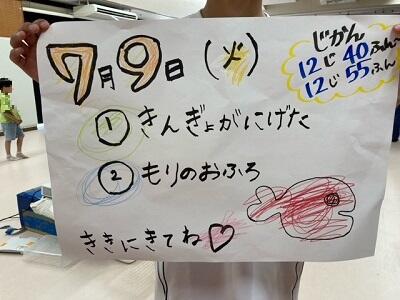 7月9日(火)
じかん
12じ40ふん〜
12じ55ふん
①きんぎょがにげた
②もりのおふろ
ききにきてね♡